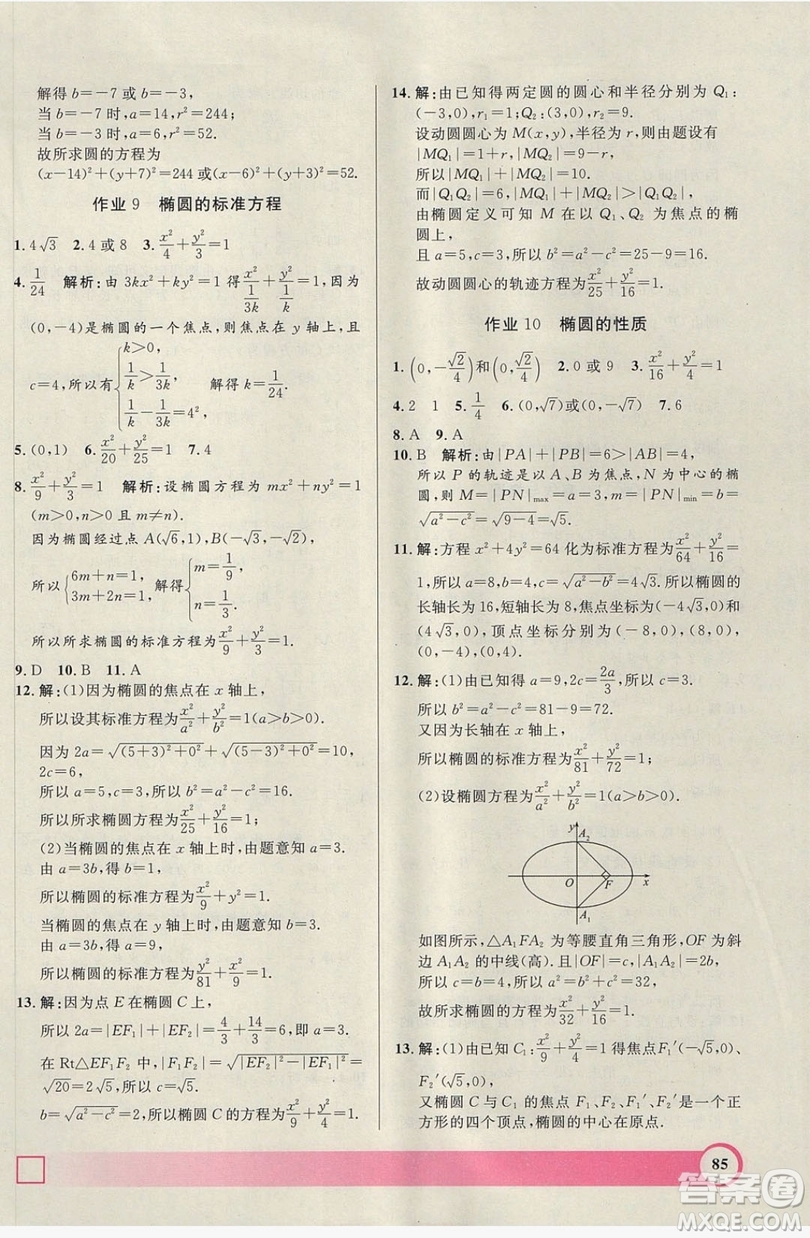 解得 b=-7 或 b=-3,
当 b=-7 时,a=14,r²=244;
当 b=-3 时,a=6,r²=52.
故所求圆的方程为
(x-14)²+(y-7)²=244 或(x-6)²+(y-3)²=52.
作业 9 椭圆的标准方程
1. 4√3 2. 4 或 8 3. x²/6+y²/3=1
4. 1/24 解析:由 3kx²+ky²=1 得 x²/(1/3k)+y²/(1/k)=1,因为
(0,-4)是椭圆的一个焦点,则焦点在 y 轴上,且
c=4,所以有{k>0, 1/k>1/3k, 1/k-1/3k=4², 解得 k=1/24.
5. (0,1) 6. x²/20+y²/25=1 7. 4
8. x²/9+y²/3=1 解析:设椭圆方程为 mx²+ny²=1
(m>0,n>0 且 m≠n).
因为椭圆经过点 A(√6,1),B(-√3,-√2),
所以{6m+n=1, 3m+2n=1, 解得{m=1/9, n=1/3.
所以所求椭圆的标准方程为x²/9+y²/3=1.
9. D 10. B 11. A
12. 解:(1)因为椭圆的焦点在 x 轴上,
所以设其标准方程为x²/a²+y²/b²=1(a>b>0).
因为 2a=√((5+3)²+0²)+√((5-3)²+0²)=10,
2c=6,
所以 a=5,c=3,所以 b²=a²-c²=16.
所以所求椭圆方程为x²/25+y²/16=1;
(2)当椭圆的焦点在 x 轴上时,由题意知 a=3.
由 a=3b,得 b=1.
所以椭圆的标准方程为x²/9+y²=1.
当椭圆的焦点在 y 轴上时,由题意知 b=3.
由 a=3b,得 a=9.
所以椭圆的标准方程为y²/81+x²/9=1.
13. 解:因为点 E 在椭圆 C 上,
所以 2a=|EF₁|+|EF₂|=4/3+14/3=6,即 a=3.
在 Rt△EF₁F₂ 中,|F₁F₂|=√(|EF₂|²-|EF₁|²)=
√20=2√5,
b=√(a²-c²)=2,所以椭圆 C 的方程为x²/9+y²/4=1.
14. 解:由已知得两定圆的圆心和半径分别为 Q₁:
(-3,0),r₁=1;Q₂:(3,0),r₂=9.
设动圆圆心为 M(x,y),半径为 r,则由题设有
|MQ₁|=1+r,|MQ₂|=9-r.
所以|MQ₁|+|MQ₂|=10.
而|Q₁Q₂|=6,且|MQ₁|+|MQ₂|>|Q₁Q₂|,
由椭圆定义可知 M 在以 Q₁、Q₂ 为焦点的椭
圆上,
且 a=5,c=3,所以 b²=a²-c²=25-9=16.
故动圆圆心的轨迹方程为x²/25+y²/16=1.
作业 10 椭圆的性质
1. (0,-√2/4)和(0,√2/4) 2. 0 或 9 3. x²/16+y²/4=1
4. 2 1 5. 1/4 6. (0,√7)或(0,-√7) 7. 6
8. A 9. A
10. B 解析:由|PA|+|PB|=6>|AB|=4,
所以 P 的轨迹是以 A、B 为焦点,N 为中心的椭
圆,则 M=|PN|max=a=3,m=|PN|min=b=
√(a²-c²)=√(9-4)=√5.
11. 解:方程 x²+4y²=64 化为标准方程x²/64+y²/16=
1,所以 a=8,b=4,c=√(a²-b²)=4√3.所以椭圆的
长轴长为 16,短轴长为 8,焦点坐标为(-4√3,0)和
(4√3,0),顶点坐标分别为(-8,0),(8,0),
(0,-4),(0,4).
12. 解:(1)由已知得 a=9,2c=2a/3,
所以 b²=a²-c²=81-9=72.
又因为长轴在 x 轴上,
所以椭圆的标准方程为x²/81+y²/72=1;
(2)设椭圆方程为x²/a²+y²/b²=1(a>b>0).
y A₂
O F x
A₁
如图所示,△A₁FA₂ 为等腰直角三角形,OF 为斜
边 A₁A₂ 的中线(高).且|OF|=c,|A₁A₂|=2b,
所以 c=b=4.所以 a²=b²+c²=32,
故所求椭圆的方程为x²/32+y²/16=1.
13. 解:(1)由已知 C₁:x²/9+y²/4=1 得焦点 F₁′(-√5,0),
F₂′(√5,0),
又椭圆 C 与 C₁ 的焦点 F₁、F₂、F₁′、F₂′是一个正
方形的四个顶点,椭圆的中心在原点.
85
答案圈
MXQE.COM